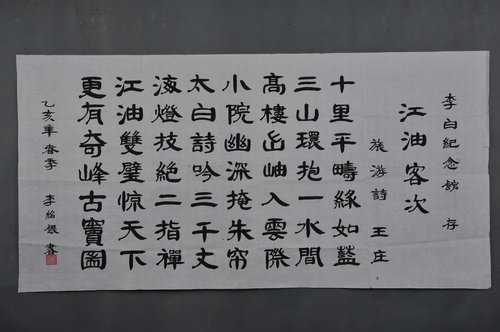 李白紀念館 存
江油客次
旅游詩 王庄
十里平疇緑如藍
三山環抱一水間
高樓出岫入雲際
小院幽深掩朱帘
太白詩吟三千丈
海燈技絕二指禪
江油雙璧惊天下
更有奇峰古竇圌
乙亥年春季 李紹銀 書